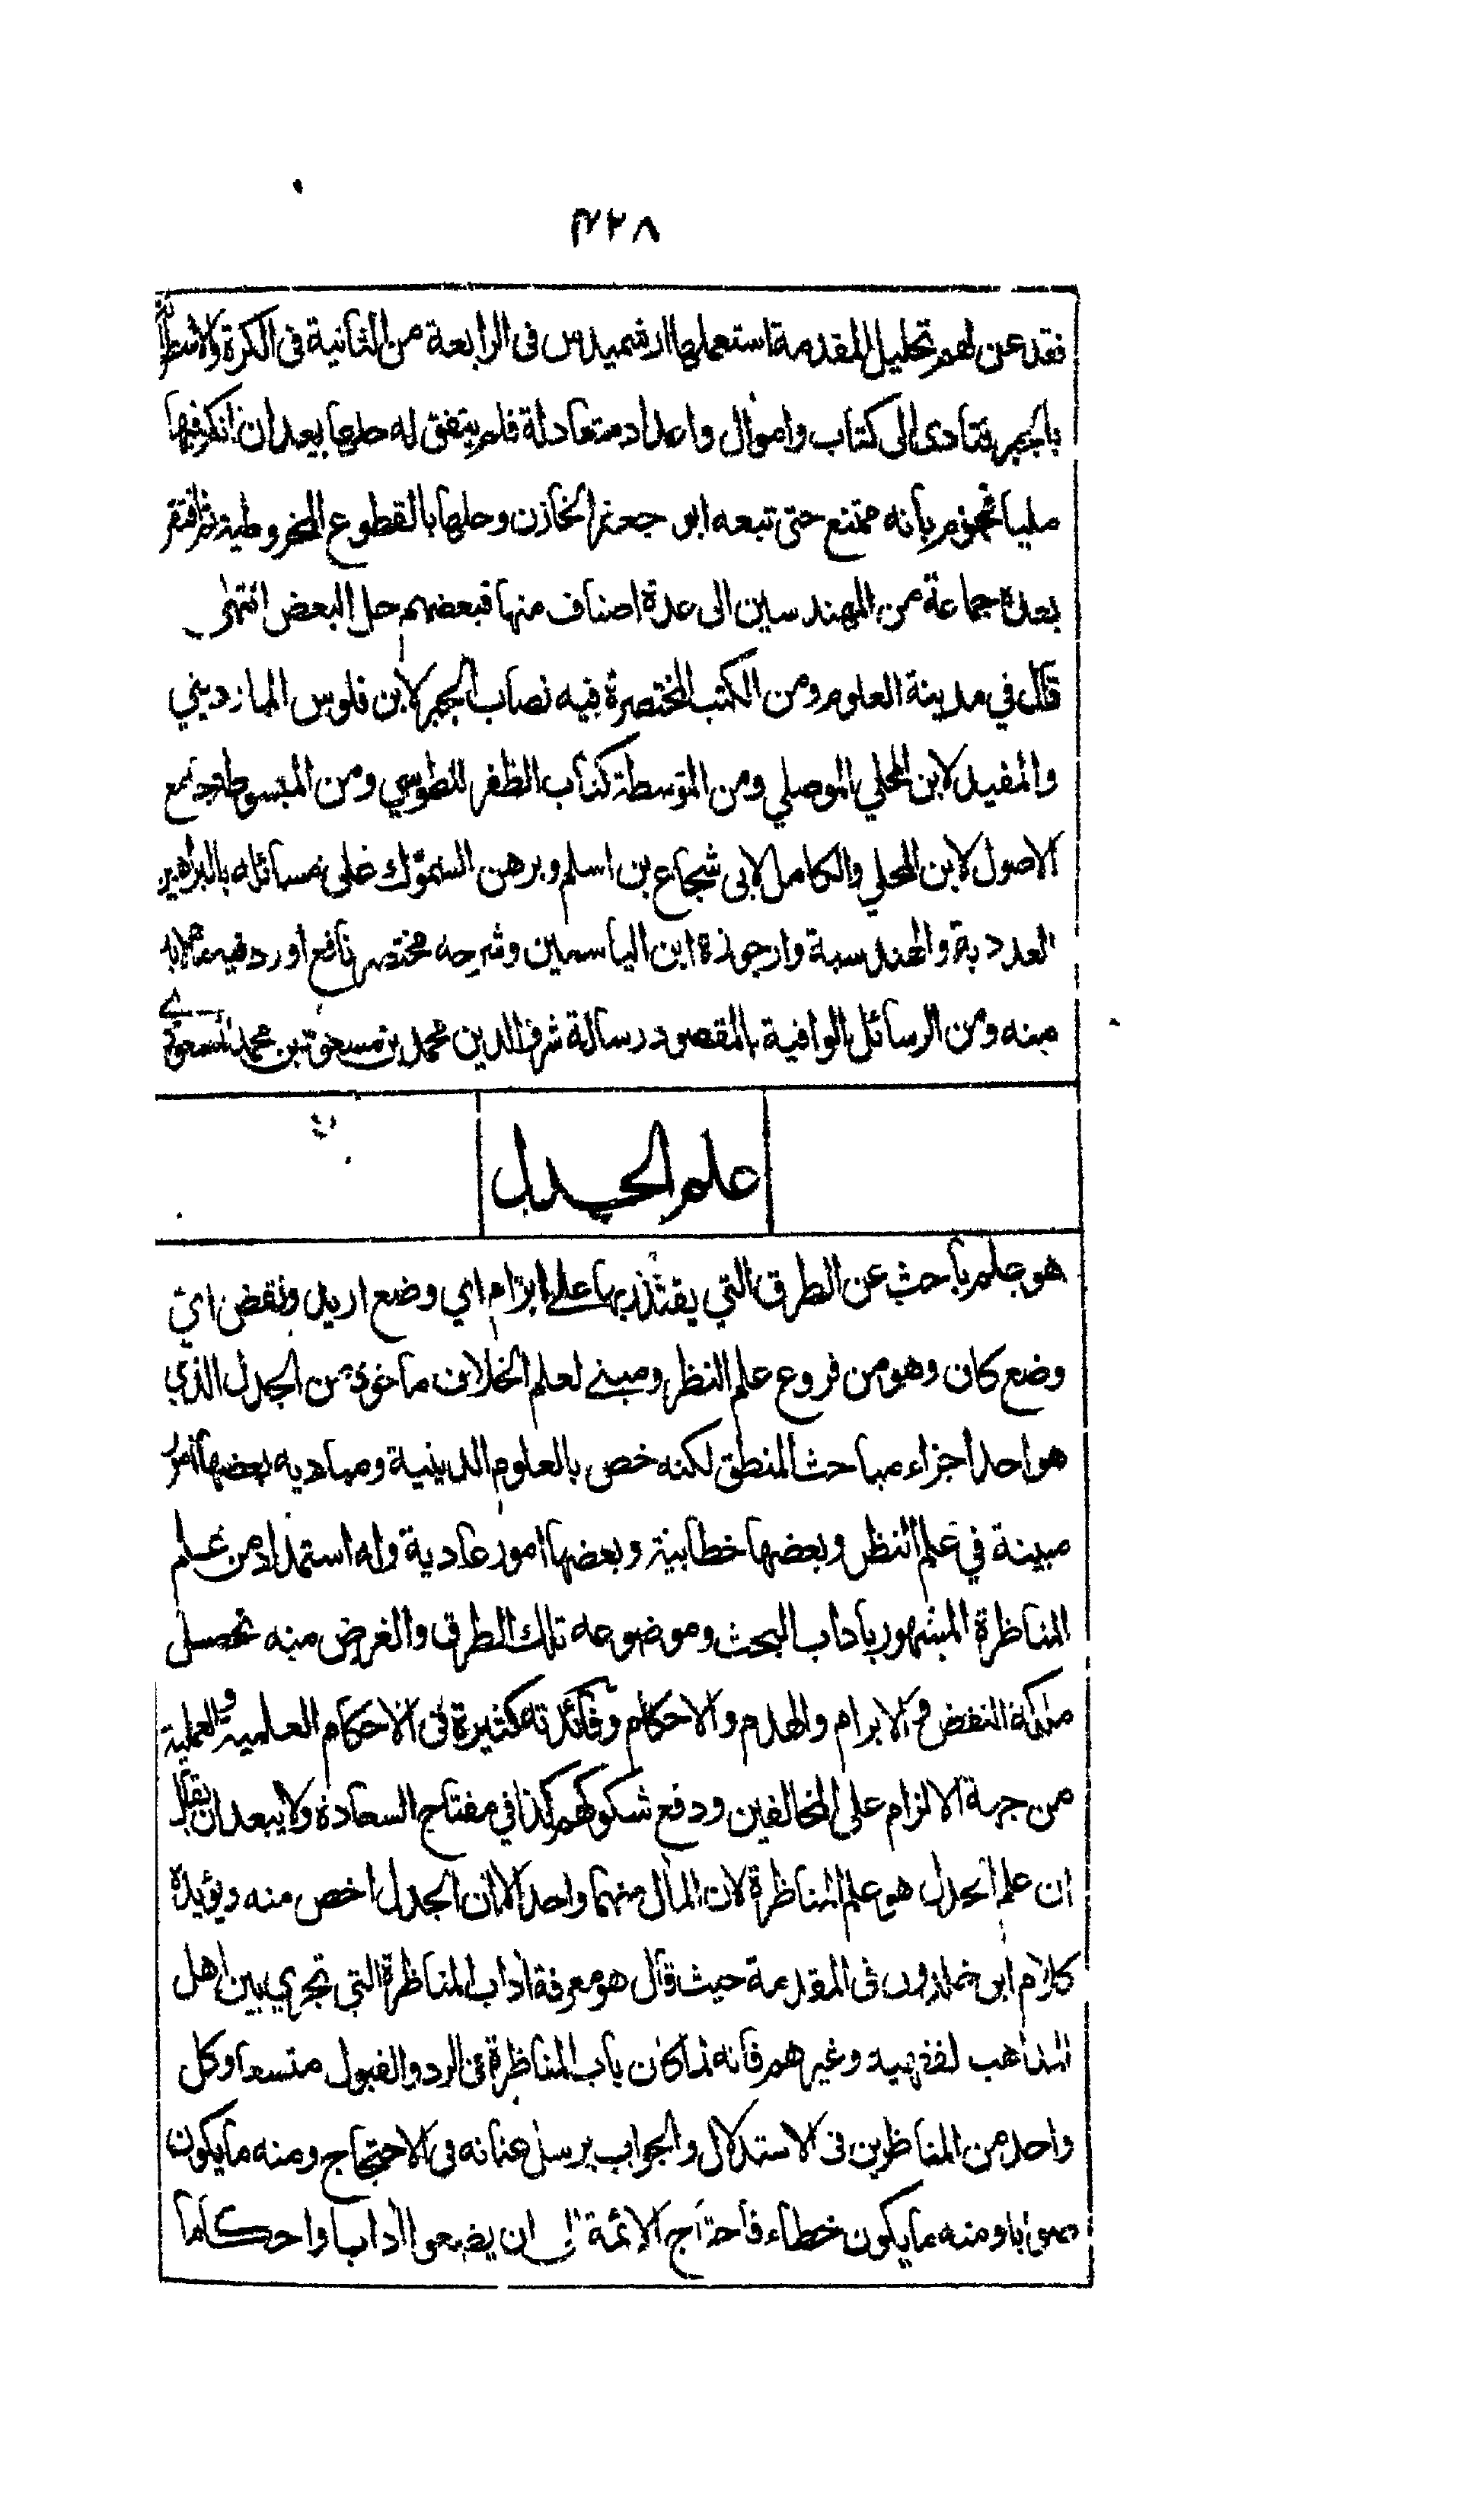 ٤٢٨
فقد عن لهم تحليل المقدمة استعملها ارشميدس فى الرابعة من الثانية فى الكرة والاسطوانة
بالجبر فتادى الى كتاب واموال واعداد متعادلة فلم يتفق له حلها بعد ان افكر فيها
مليا فجزم بانه ممتنع حتى تبعه ابو جعفر الخازن وحلها بالقطوع المخروطية ثم افتقر
بعده جماعة من المهندسين الى عدة اصناف منها فبعضهم حل البعض انتهى
قال في مدينة العلوم ومن الكتب المختصرة فيه نصاب الجبر لابن فلوس المارديني
والمفيد لابن المحلي الموصلي ومن المتوسطة كتاب الظفر للطوسي ومن المبسوطة جامع
الاصول لابن المحلي والكامل لابى شجاع بن اسلم وبرهن السموءل على مسائله بالبراهين
العددية والهندسية وارجوزة ابن الياسمين وشرحه مختصر نافع اورد فيه ما لابد
منه ومن الرسائل الوافية بالمقصود رسالة شرف الدين محمد بن مسعود بن محمد المسعودي
علم الجدل
هو علم باحث عن الطرق التي يقتدر بها على ابرام اي وضع اريد ونقض اي
وضع كان وهو من فروع علم النظر ومبنى لعلم الخلاف ماخوذ من الجدل الذي
هو احد اجزاء مباحث المنطق لكنه خص بالعلوم الدينية ومباديه بعضها امور
مبينة في علم النظر وبعضها خطابية وبعضها امور عادية وله استمداد من علم
المناظرة المشهور باداب البحث وموضوعه تلك الطرق والغرض منه تحصيل
ملكة النقض والابرام والهدم والاحكام وفائدته كثيرة فى الاحكام العلمية والعملية
من جهة الالزام على المخالفين ودفع شكوكهم كذا في مفتاح السعادة ولا يبعد ان يقال
ان علم الجدل هو علم المناظرة لان المآل منهما واحد الا ان الجدل اخص منه ويؤيده
كلام ابن خلدون فى المقدمة حيث قال هو معرفة اداب المناظرة التي تجري بين اهل
المذاهب لفقهية وغيرهم فانه لما كان باب المناظرة فى الرد والقبول متسعا وكل
واحد من المناظرين فى الاستدلال والجواب يرسل عنانه فى الاحتجاج ومنه ما يكون
صوابا ومنه ما يكون خطاء فاحتاج الائمة الى ان يضعوا ادابا واحكاما